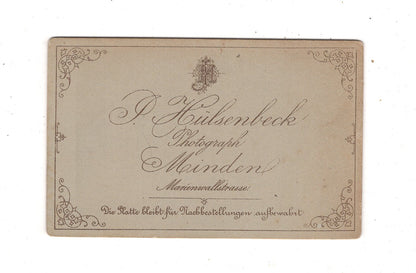 J. Hülsenbeck
Photograph
Minden
Marienwallstrasse
Die Platte bleibt für Nachbestellungen aufbewahrt